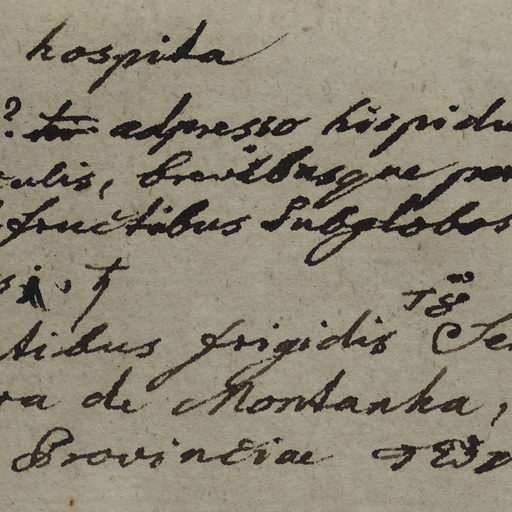 hospita
? adpresso hispidu
culis, brevibusque
fructibus subglobos
tibus frigidis Se
ra de Montanha,
Provinciae